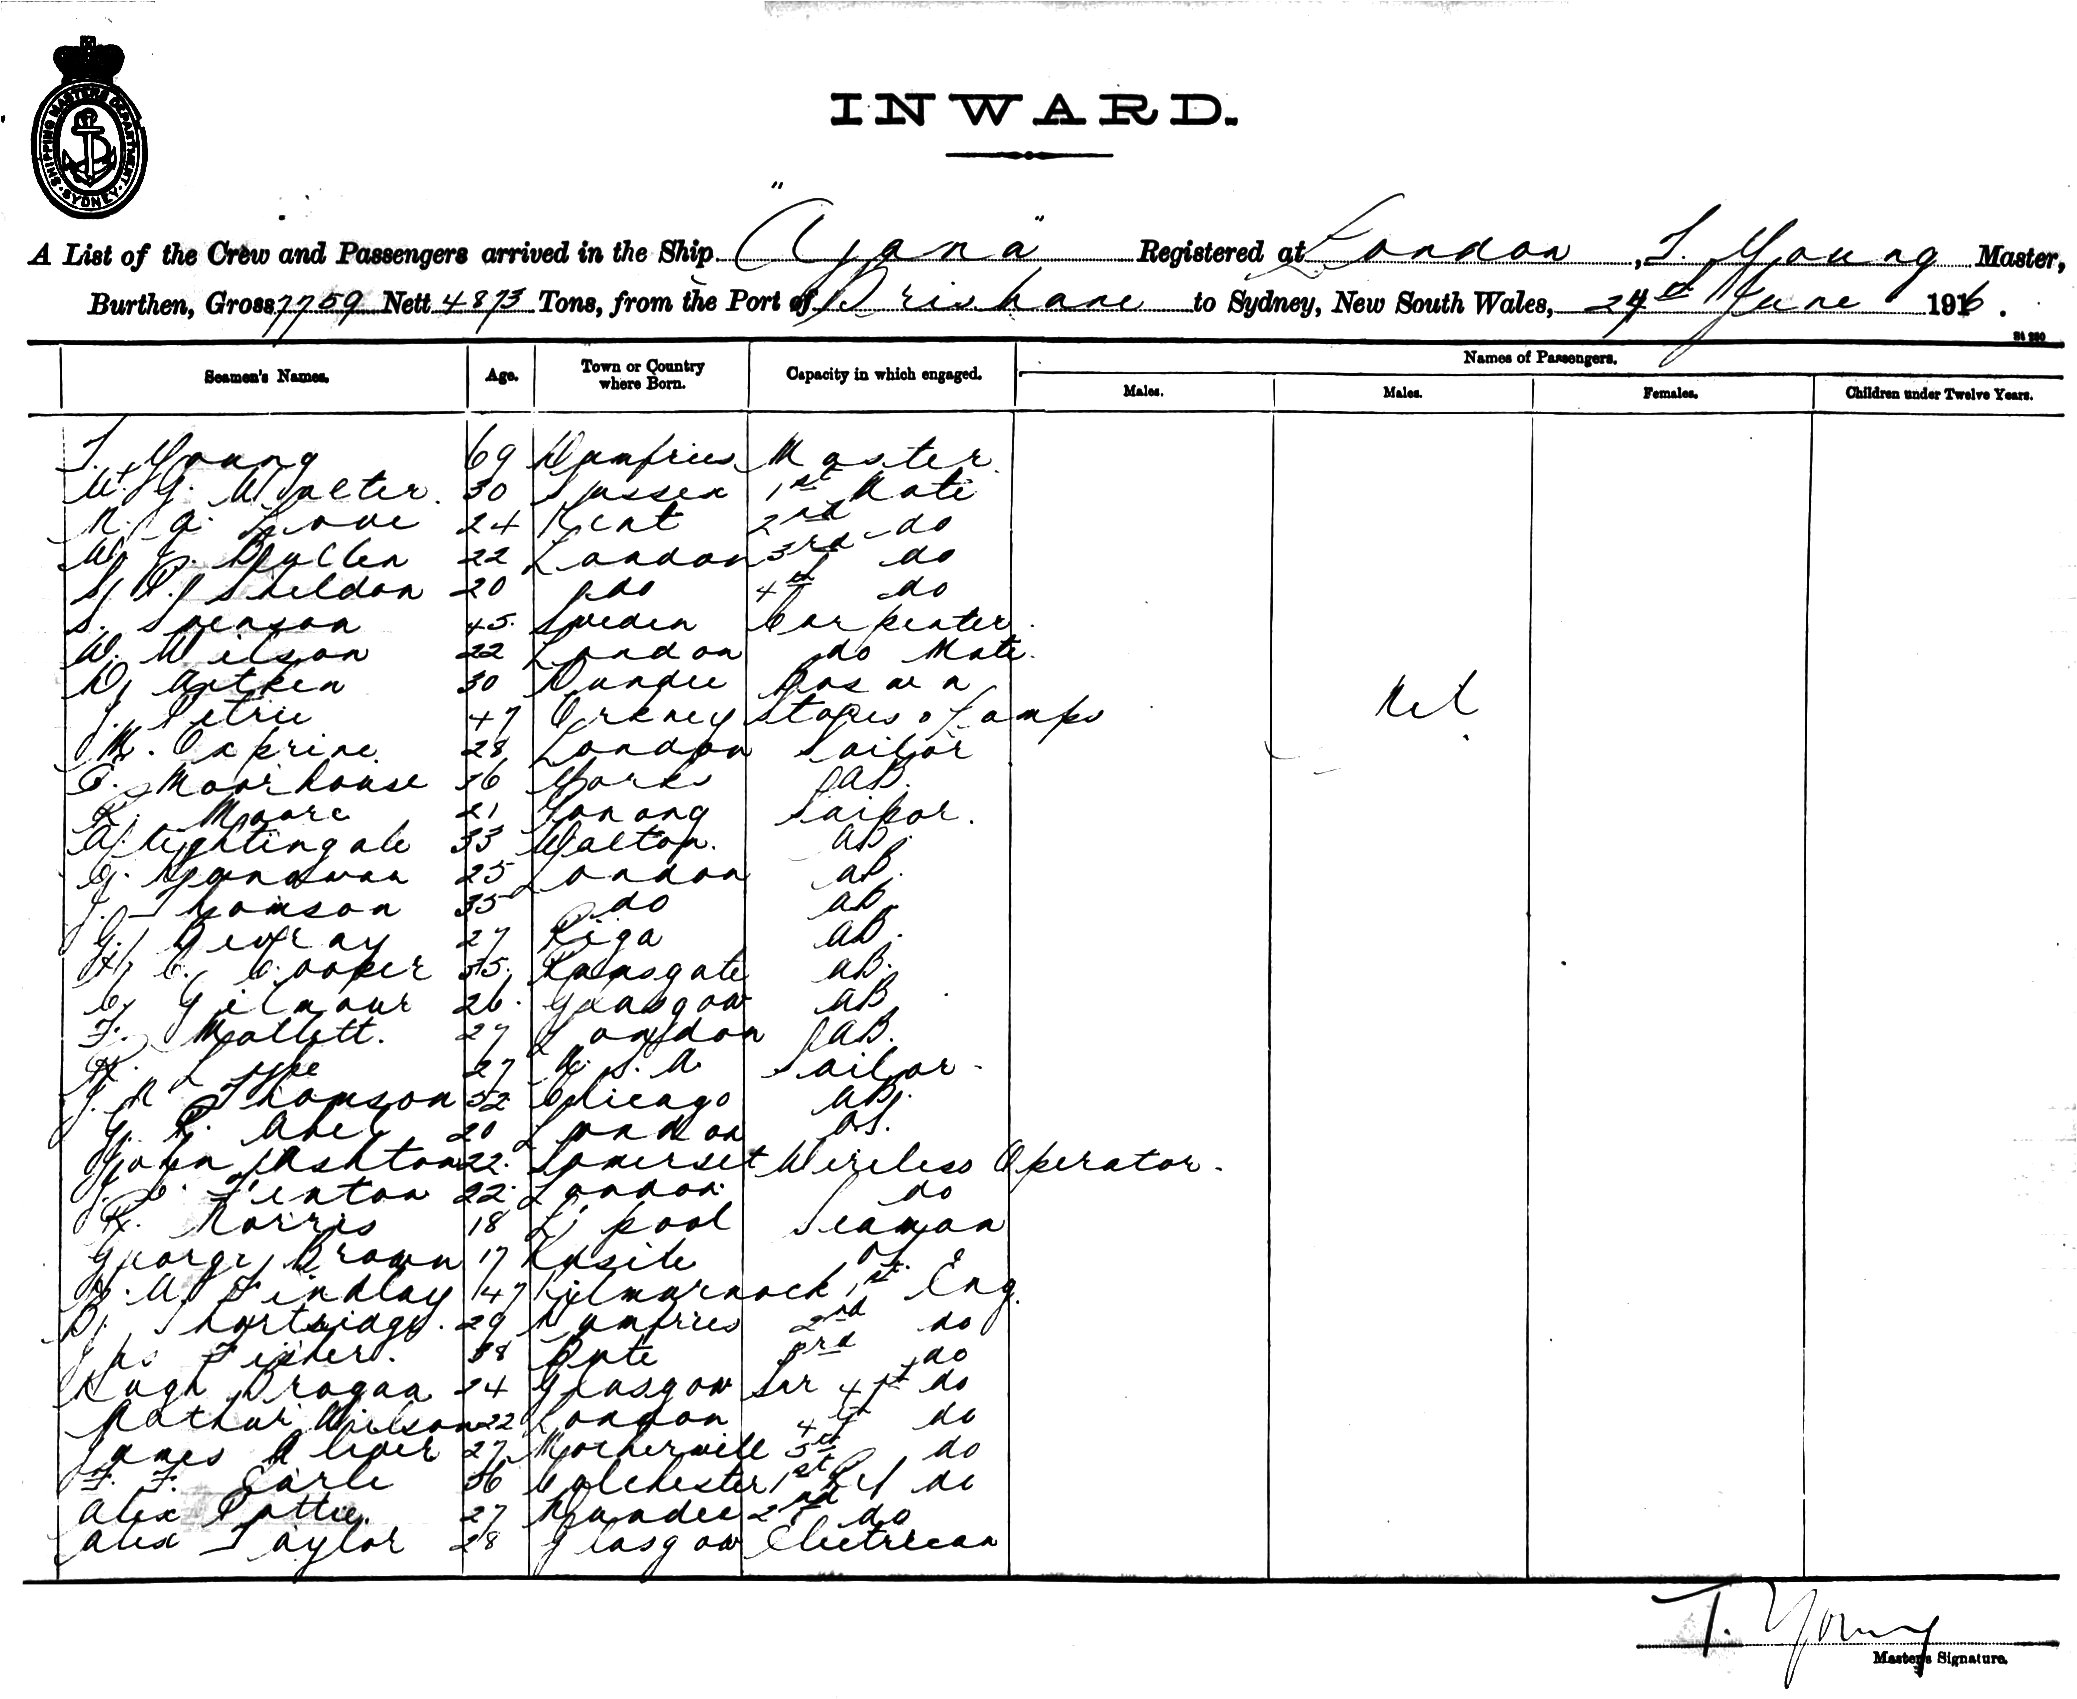 SHIPPING MASTERS DEPARTMENT SYDNEY
INWARD.
A List of the Crew and Passengers arrived in the Ship "Ayana" Registered at London, T. Young Master,
Burthen, Gross 7759 Nett 4873 Tons, from the Port of Brisbane to Sydney, New South Wales, 24th June 1916.
Seamen's Names. Age. Town or Country where Born. Capacity in which engaged. Names of Passengers.
Males. Males. Females. Children under Twelve Years.
T. Young 69 Dumfries Master
W. G. Walter. 30 Sussex 1st Mate
R. G. Love 24 Kent 2nd do
Bullen 22 London 3rd do
Sheldon 20 do 4th do
S. Svenson 45. Sweden Carpenter.
W. Wilson 22 London do Mate.
D. Aitken 30 Dundee Bosun
J. Petrie 47 Orkney Stores & Lamps
Nil
28 London Sailor
Moorhouse 36 Yorks AB.
Moore 21 Sailor.
A. Nightingale 33 Walton. AB.
25 London AB.
J. Thomson 35 do AB.
27 Riga AB.
H. C. Cooper 55. Ramsgate AB.
C. Gilmour 26. Glasgow AB
F. Mallett. 27 London AB.
27 U. S. A Sailor.
J. R. Thomson 52 Chicago AB.
Abel 20 London OS.
John Ashton 22. Somerset Wireless Operator.
Fenton 22. London. do
R. Norris 18 L'pool Seaman
George Brown 17
A. Findlay 47 Kilmarnock 1st Eng.
Shortridge. 29 Dumfries 2nd do
Jas Fisher. 38 Bute 3rd do
Hugh Brogan 24 Glasgow Snr 4th do
Arthur Wilson 22 London 4th do
James Oliver 27 Motherwell 5th do
F. F. Earle 36 Colchester 1st Ref do
Alex Pattie. 27 Dundee 2nd do
Alex Taylor 28 Glasgow Electrican
T. Young
Master's Signature.